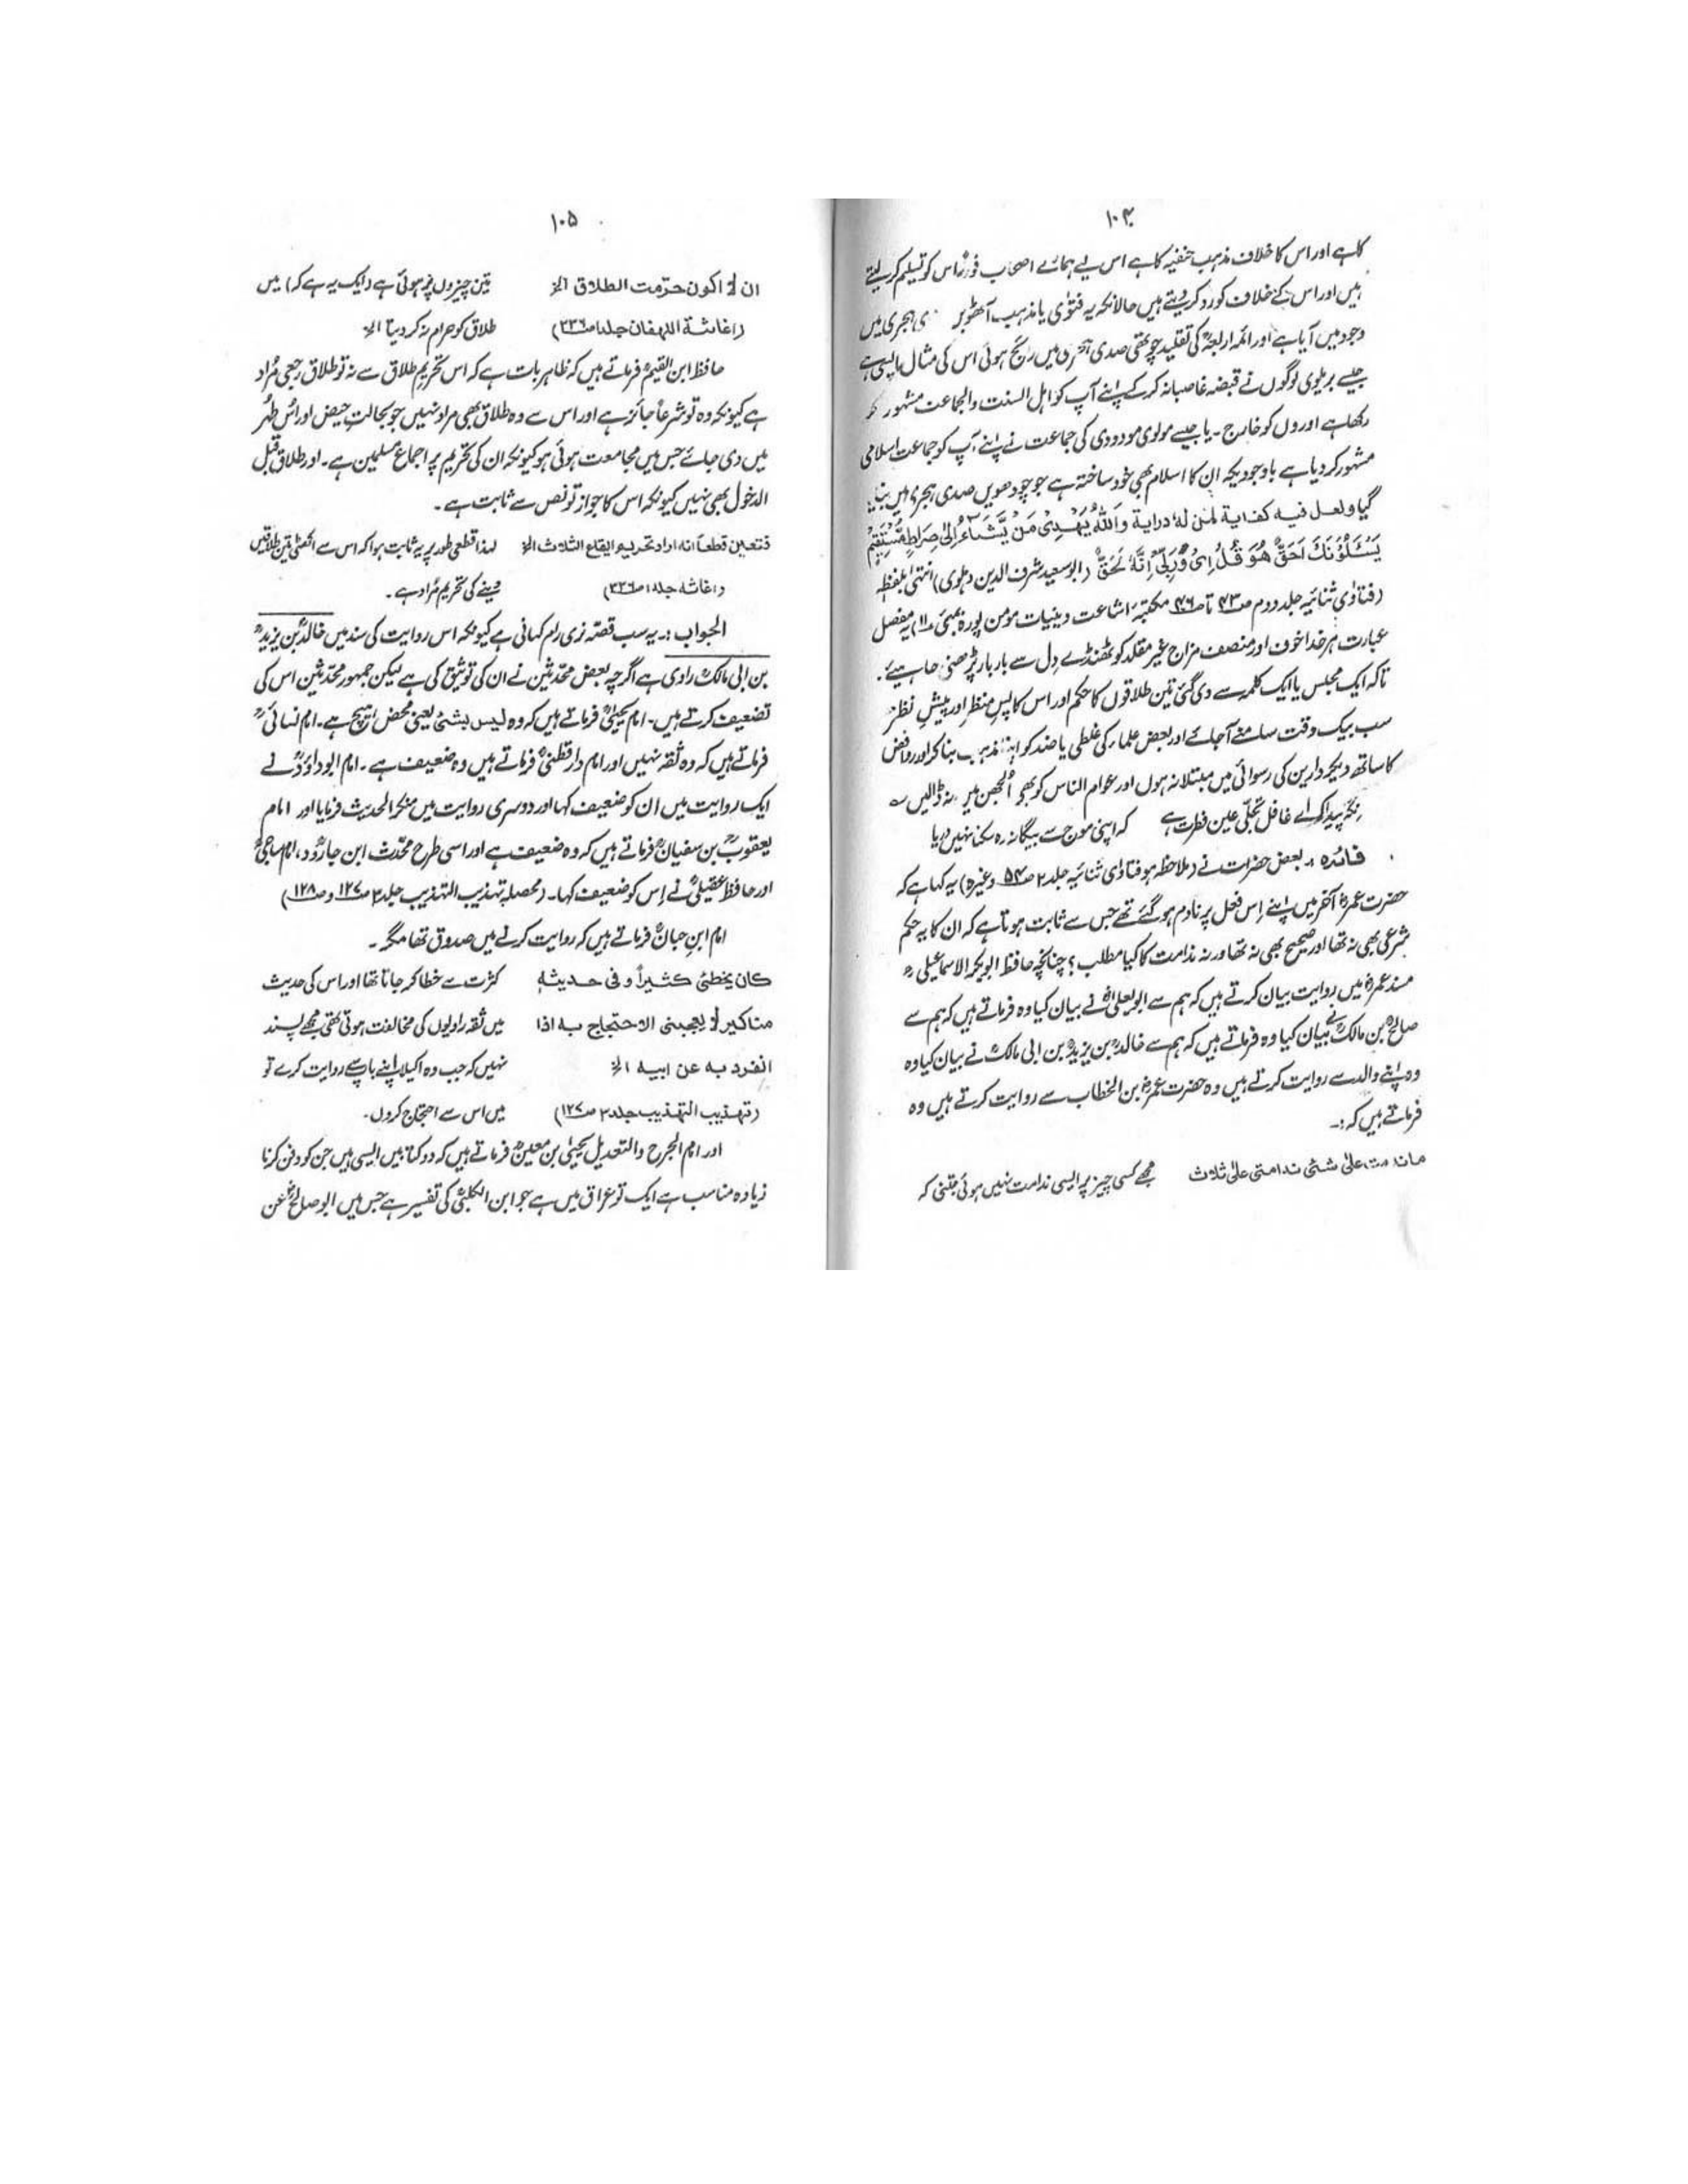 ۱۰۴
کا ہے اور اس کا خلاف مذہب حنفیہ کا ہے اس لیے ہمارے اصحاب فوراً اس کو تسلیم کر لیتے
ہیں اور اس کے خلاف کو رد کر دیتے ہیں حالانکہ یہ فتوٰی یا مذہب آٹھویں ی ہجری میں
وجود میں آیا ہے اور ائمہ اربعہؒ کی تقلید چوتھی صدی ہجری میں رائج ہوئی اس کی مثال ایسی ہے
جیسے بریلوی لوگوں نے قبضہ غاصبانہ کر کے اپنے آپ کو اہل السنت والجماعت مشہور کر
رکھا ہے اوروں کو خارج ۔ یا جیسے مولوی مودودی کی جماعت نے اپنے آپ کو جماعت اسلامی
مشہور کر دیا ہے باوجودیکہ ان کا اسلام بھی خود ساختہ ہے جو چودھویں صدی ہجری میں بنایا
گیا ولعل فیہ کفایۃ لمن لہٗ درایۃ وَاللّٰہُ یَہْدِیْ مَنْ یَّشَآءُ اِلٰی صِرَاطٍ مُّسْتَقِیْمٍ
یَسْئَلُوْنَكَ اَحَقٌّ ہُوَ قُلْ اِیْ وَرَبِّیْ اِنَّہٗ لَحَقٌّ (ابوسعید شرف الدین دہلوی) انتہیٰ بلفظہ
(فتاوٰی ثنائیہ جلد دوم ص۴۳ تا ص۴۶ مکتبہ اشاعت دینیات مومن پورہ بمبئی ۱۱) یہ مفصل
عبارت ہر خدا خوف اور منصف مزاج غیر مقلد کو ٹھنڈے دِل سے بار بار پڑھنی چاہیئے ۔
تاکہ ایک مجلس یا ایک کلمہ سے دی گئی تین طلاقوں کا حکم اور اس کا پس منظر اور پیش نظر
سب بیک وقت سامنے آجائے اور بعض علماء کی غلطی یا ضد کو اپنا مذہب بنا کر اور روافض
کا ساتھ دیکر دارین کی رسوائی میں مبتلا نہ ہوں اور عوام الناس کو بھی اُلجھن میں نہ ڈالیں ؎
نِگہ پیدا کر اے غافل تجلّی عین فطرت ہے کہ اپنی موج سے بیگانہ رہ سکتا نہیں دریا
فائدہ :۔ بعض حضرات نے (ملاحظہ ہو فتاوٰی ثنائیہ جلد ۲ ص۵۴ وغیرہ) یہ کہا ہے کہ
حضرت عمرؓ آخر میں اپنے اِس فعل پر نادم ہو گئے تھے جس سے ثابت ہوتا ہے کہ ان کا یہ حکم
شرعی بھی نہ تھا اور صحیح بھی نہ تھا ورنہ ندامت کا کیا مطلب ؟ چنانچہ حافظ ابوبکر الاسماعیلیؒ
مسند عمرؓ میں روایت بیان کرتے ہیں کہ ہم سے ابویعلیٰؒ نے بیان کیا وہ فرماتے ہیں کہ ہم سے
صالحؒ بن مالکؒ نے بیان کیا وہ فرماتے ہیں کہ ہم سے خالدؒ بن یزیدؒ بن ابی مالکؒ نے بیان کیا وہ
وہ اپنے والد سے روایت کرتے ہیں وہ حضرت عمرؓ بن الخطاب سے روایت کرتے ہیں وہ
فرماتے ہیں کہ :۔
ماندمت علیٰ شئی ندامتی علیٰ ثلاث مجھے کسی چیز پر ایسی ندامت نہیں ہوئی جتنی کہ
۱۰۵
ان لا اکون حرّمت الطلاق الخ تین چیزوں پر ہوئی ہے (ایک یہ ہے کہ) میں
(اغاثۃ اللہفان جلد۱ ص۳۳۶) طلاق کو حرام نہ کر دیتا الخ
حافظ ابن القیمؒ فرماتے ہیں کہ ظاہر بات ہے کہ اس تحریم طلاق سے نہ تو طلاق رجعی مُراد
ہے کیونکہ وہ تو شرعاً جائز ہے اور اس سے وہ طلاق بھی مراد نہیں جو بحالتِ حیض اور اس طُہر
میں دی جائے جس میں مجامعت ہوئی ہو کیونکہ ان کی تحریم پر اجماع مسلمین ہے ۔ اور طلاق قبل
الدخول بھی نہیں کیونکہ اس کا جواز تو نص سے ثابت ہے ۔
فتعین قطعاً انہ اراد تحریم ایقاع الثلاث الخ لہذا قطعی طور پر یہ ثابت ہوا کہ اس سے اکھٹی تین طلاقیں
(اغاثہ جلد۱ ص۳۳۶) دینے کی تحریم مُراد ہے ۔
الجواب :۔ یہ سب قصّہ نری رام کہانی ہے کیونکہ اس روایت کی سند میں خالدؒ بن یزیدؒ
بن ابی مالکؒ راوی ہے اگرچہ بعض محدّثین نے ان کی توثیق کی ہے لیکن جمہور محدّثین اس کی
تضعیف کرتے ہیں ۔ امام یحییٰؒ فرماتے ہیں کہ وہ لیس بشئ یعنی محض ہیچ ہے ۔ امام نسائیؒ
فرماتے ہیں کہ وہ ثقہ نہیں اور امام دارقطنیؒ فرماتے ہیں وہ ضعیف ہے ۔ امام ابوداؤدؒ نے
ایک روایت میں ان کو ضعیف کہا اور دوسری روایت میں منکر الحدیث فرمایا اور امام
یعقوبؒ بن سفیانؒ فرماتے ہیں کہ وہ ضعیف ہے اور اسی طرح محدّث ابن جارودؒ ، امام ساجیؒ
اور حافظ عقیلیؒ نے اِس کو ضعیف کہا ۔ (محصلہ تہذیب التہذیب جلد۳ ص۱۲۷ و ص۱۲۸)
امام ابن حبانؒ فرماتے ہیں کہ روایت کرنے میں صدوق تھا مگر ۔
کان یخطئ کثیراً وفی حدیثہٖ کثرت سے خطا کر جاتا تھا اور اس کی حدیث
مناکیر لا یعجبنی الاحتجاج بہ اذا میں ثقہ راویوں کی مخالفت ہوتی تھی مجھے پسند
انفرد بہ عن ابیہ الخ نہیں کہ جب وہ اکیلا اپنے باپ سے روایت کرے تو
(تہذیب التہذیب جلد۳ ص۱۲۷) میں اس سے احتجاج کروں ۔
اور امام الجرح والتعدیل یحییٰ بن معینؒ فرماتے ہیں کہ دو کتابیں ایسی ہیں جن کو دفن کرنا
زیادہ مناسب ہے ایک تو عراق میں ہے جو ابن الکلبی کی تفسیر ہے جس میں ابو صالحؒ عن